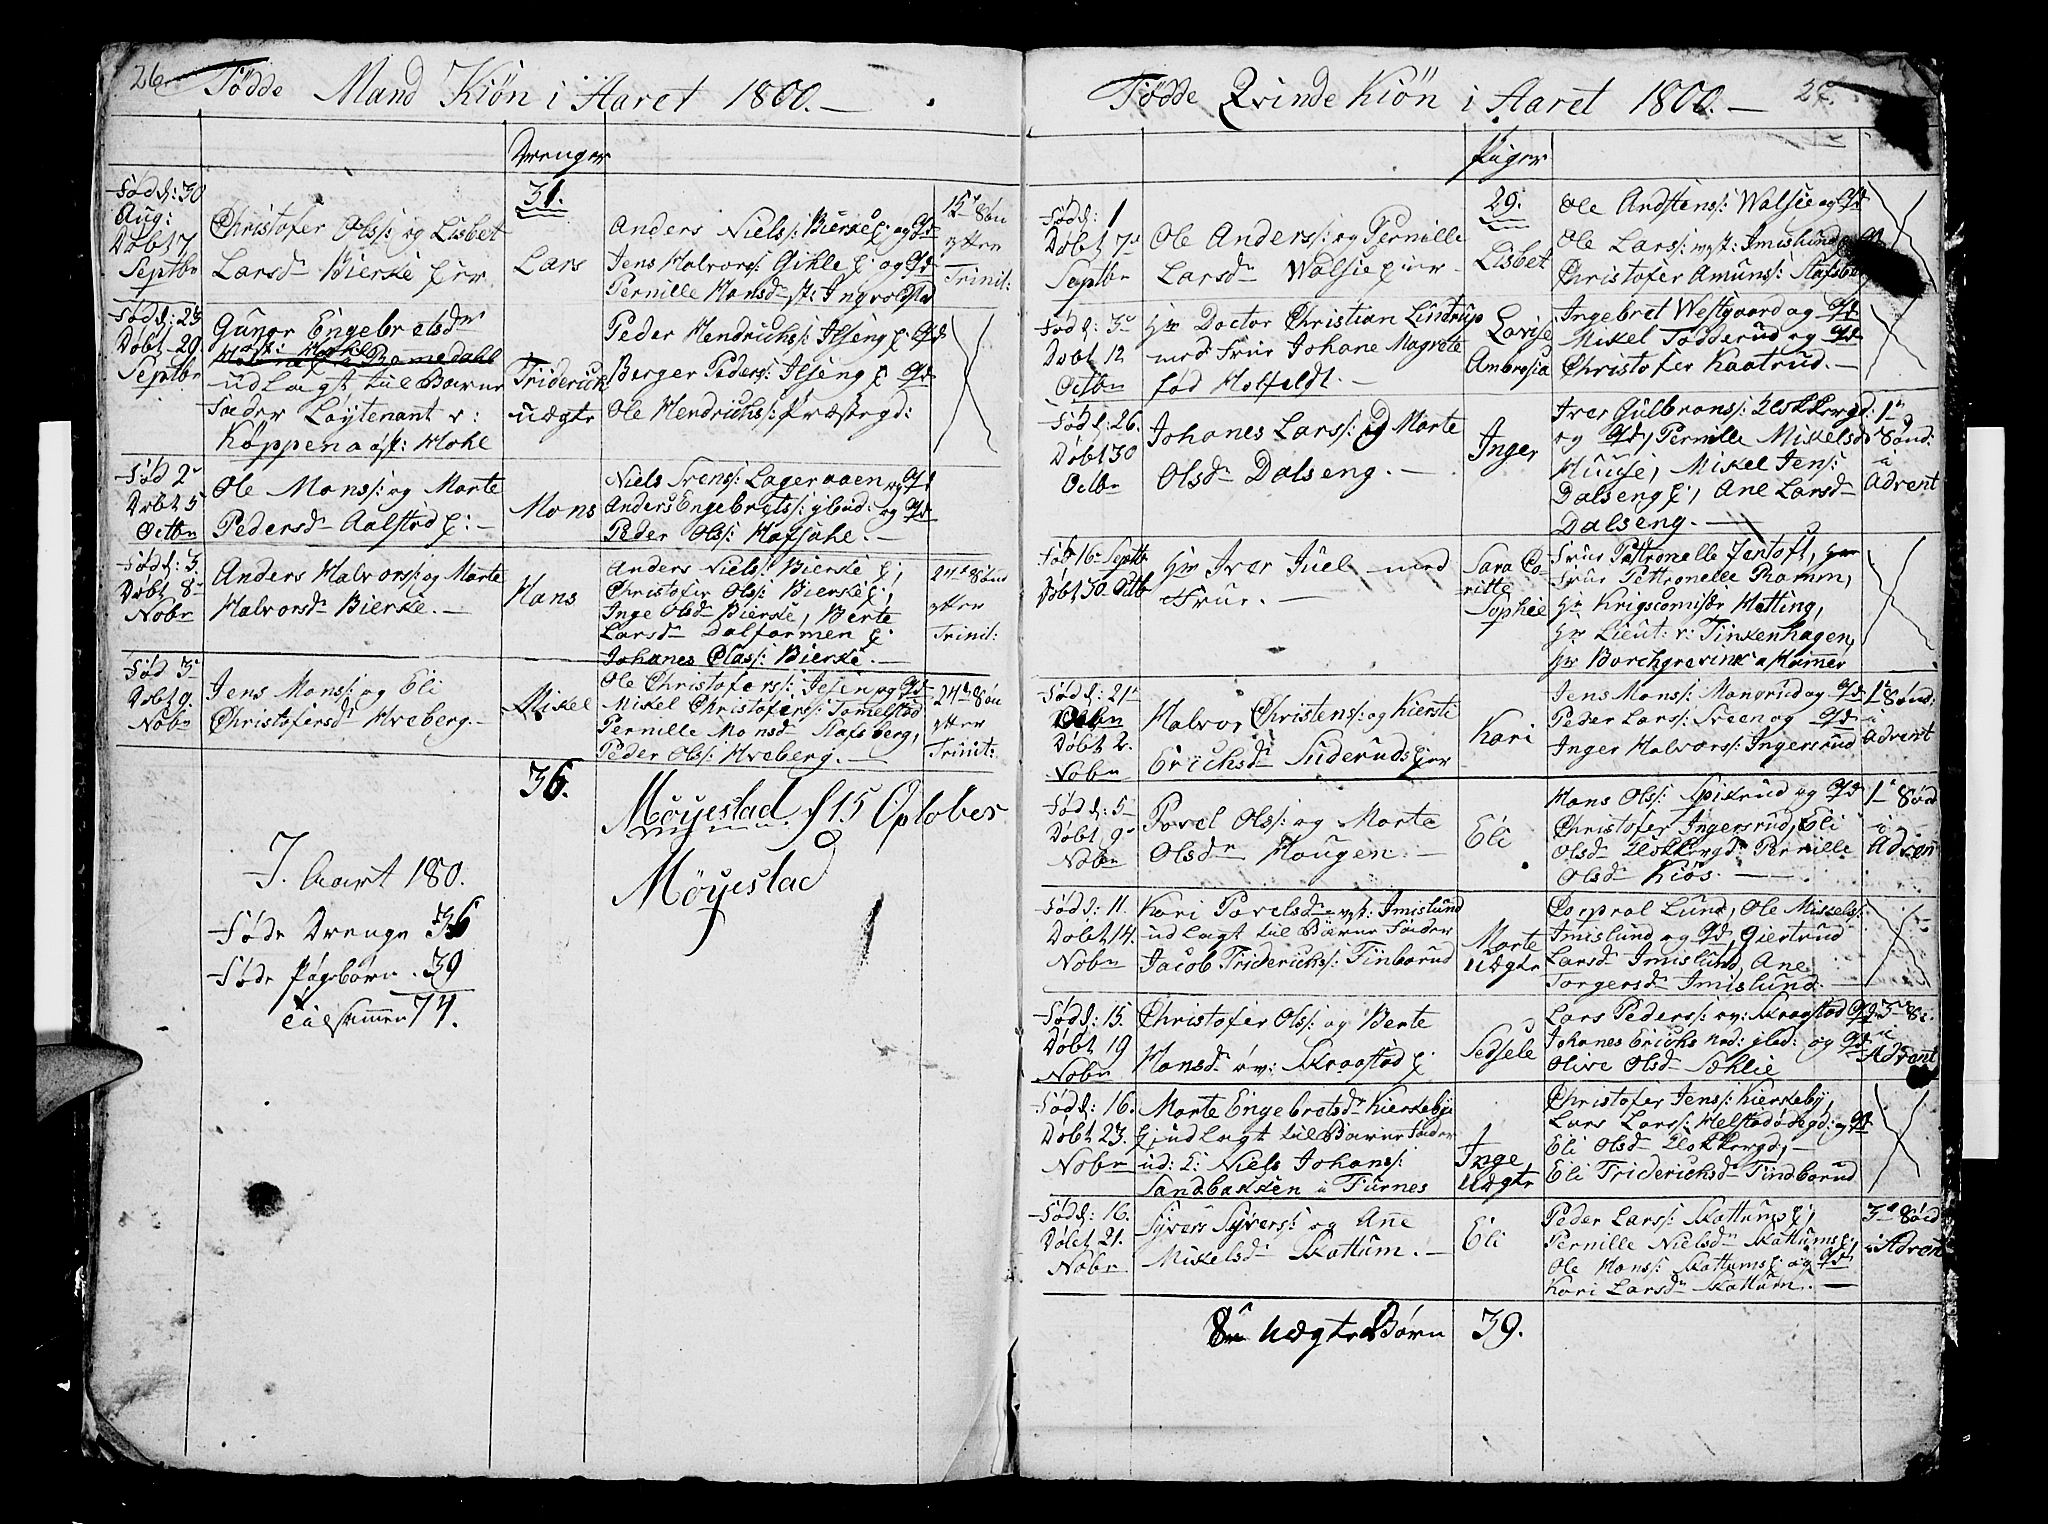 26
Födde Mand Kiön i Aaret 1800.
Drenger
31.
Föd d: 30
Aug:
Döbt 7
Septbr
Christofer Ols: og Lisbet
Larsdr Bierke
Lars
Anders Niels: Bierke og
Jens Halvors: Gihle og
Pernille Hansdr Ingvoldstad
15de Søn
efter
Trinit:
Föd d: 23
Döbt 29
Septbr
Gunor Engebretsdr
Romedahl
udlagt til Barne
Fader Löytenant v:
Köppen Mohl
Friderich
uægte
Peder Hendrichs: Ilseng
Berger Peders: Ilseng
Ole Hendrichs: Præstegd:
Föd 2
Döbt 5
Octbr
Ole Mons: og Marte
Pedersdr Aalstad
Mons
Niels Svens: Lageraaen
Anders Engebrets: og
Peder Ols: Hafsahl.
Föd d: 3.
Döbt 8
Nobr
Anders Halvors: og Marte
Halvorsdr Bierke.
Hans
Anders Niels: Bierke
Christofer Ols: Bierke
Inge Olsdr Bierke, Berte
Larsdr Dalfarmen
Johanes Olas: Bierke.
24de Sønd
efter
Trinit:
Föd 3
Döbt 9.
Nobr
Jens Mons: og Eli
Christofersdr Hveberg.
Mikel
Ole Christofers: og
Mikel Christofers: Tomelstad
Pernille Monsdr Stafsberg,
Peder Ols: Hveberg.
24de Søn
efter
Trinit:
36.
Möyestad d 15 Optober
Möyestad
I Aaret 180.
Föde Drenge 36
Föde Pigebörn 39
tilsammen 74.
Födde Qvinde Kiön i Aaret 1800.
Piger
29.
Föd d: 1
Döbt 7
Septbr
Ole Anders: og Pernille
Larsdr Walsie
Lisbet
Ole Andstens: Walsie og
Ole Lars: Imislund
Christofer Amuns: Stafsberg
Föd d: 3
Döbt 12
Octbr
Hr Doctor Christian Lindrup
med Frue Johane Magrete
föd Holfeldt.
Lovise
Ambrosia
Ingebret Westgaard og
Mikel Fodderud og
Christofer Kaatrud.
Föd d: 26.
Döbt 30
Octbr
Johanes Lars: og Marte
Olsdr Dalseng.
Inger
Iver Gulbrans: Klokkergd:
og Pernille Mikelsdr
Huuse, Mikel Jens:
Dalseng, Ane Larsdr
Dalseng.
1
Sønd:
i
Advent
Föd 16 Septb
Döbt 30 Octb
Hr Iver Juel med
Frue.
Sara Do
ritte
Sophie
Frue Pettronelle Jentoft,
Frue Pettronelle Ramm,
Hr Krigscomisær Hetting,
Hr Lieut: v: Finkenhagen,
Hr Borchgrevink
Föd d: 21
Octbr
Döbt 2.
Nobr
Halvor Christens: og Kiersti
Erichsdr Suderud
Kari
Jens Mons: Manrud og
Peder Lars: Sveen og
Inger Halvors: Ingersrud
1 Sønd:
i
Advent
Föd d: 5
Döbt 9
Nobr
Povel Ols: og Marte
Olsdr Haugen.
Eli
Hans Ols: Spikrud og
Christofer Ingersrud, Eli
Olsdr Klokkergd: Pernille
Olsdr Kiös.
1 Sønd
i
Advent
Föd d: 11.
Döbt 14.
Nobr
Kari Povelsdr Imislund
udlagt til Barne Fader
Jacob Friderichs: Finborud
Marte
uægte
Corpral Lund, Ole Mikels:
Imislund og Giertrud
Larsdr Imislund, Ane
Torgersdr Imislund.
Föd d: 15.
Döbt 19
Nobr
Christofer Ols: og Berte
Hansdr öv: Skraastad
Sedsele
Lars Peders: öv: Skraastad
Johanes Erichs og
Olive Olsdr Sæhlie
3 S:
i
Advent
Föd d: 16.
Döbt 23.
Nobr
Marte Engebretsdr Kierkeby
udlagt til Barne Fader
Niels Johans:
Sandbakken i Furnes
Inge
uægte
Christofer Jens: Kierkeby,
Lars Lars: Helstadödegd: og
Eli Olsdr Klokkergd,
Eli Friderichsdr Findborud
Föd d: 16.
Döbt 21.
Nobr
Syvers Syvers: og Ane
Mikelsdr Skattum.
Eli
Peder Lars: Skattum
Pernille Nielsdr Skattum
Ole Hans: Skattum og
Kari Larsdr Skattum.
3 Sønd
i Advent
8 Uægte Börn
39.